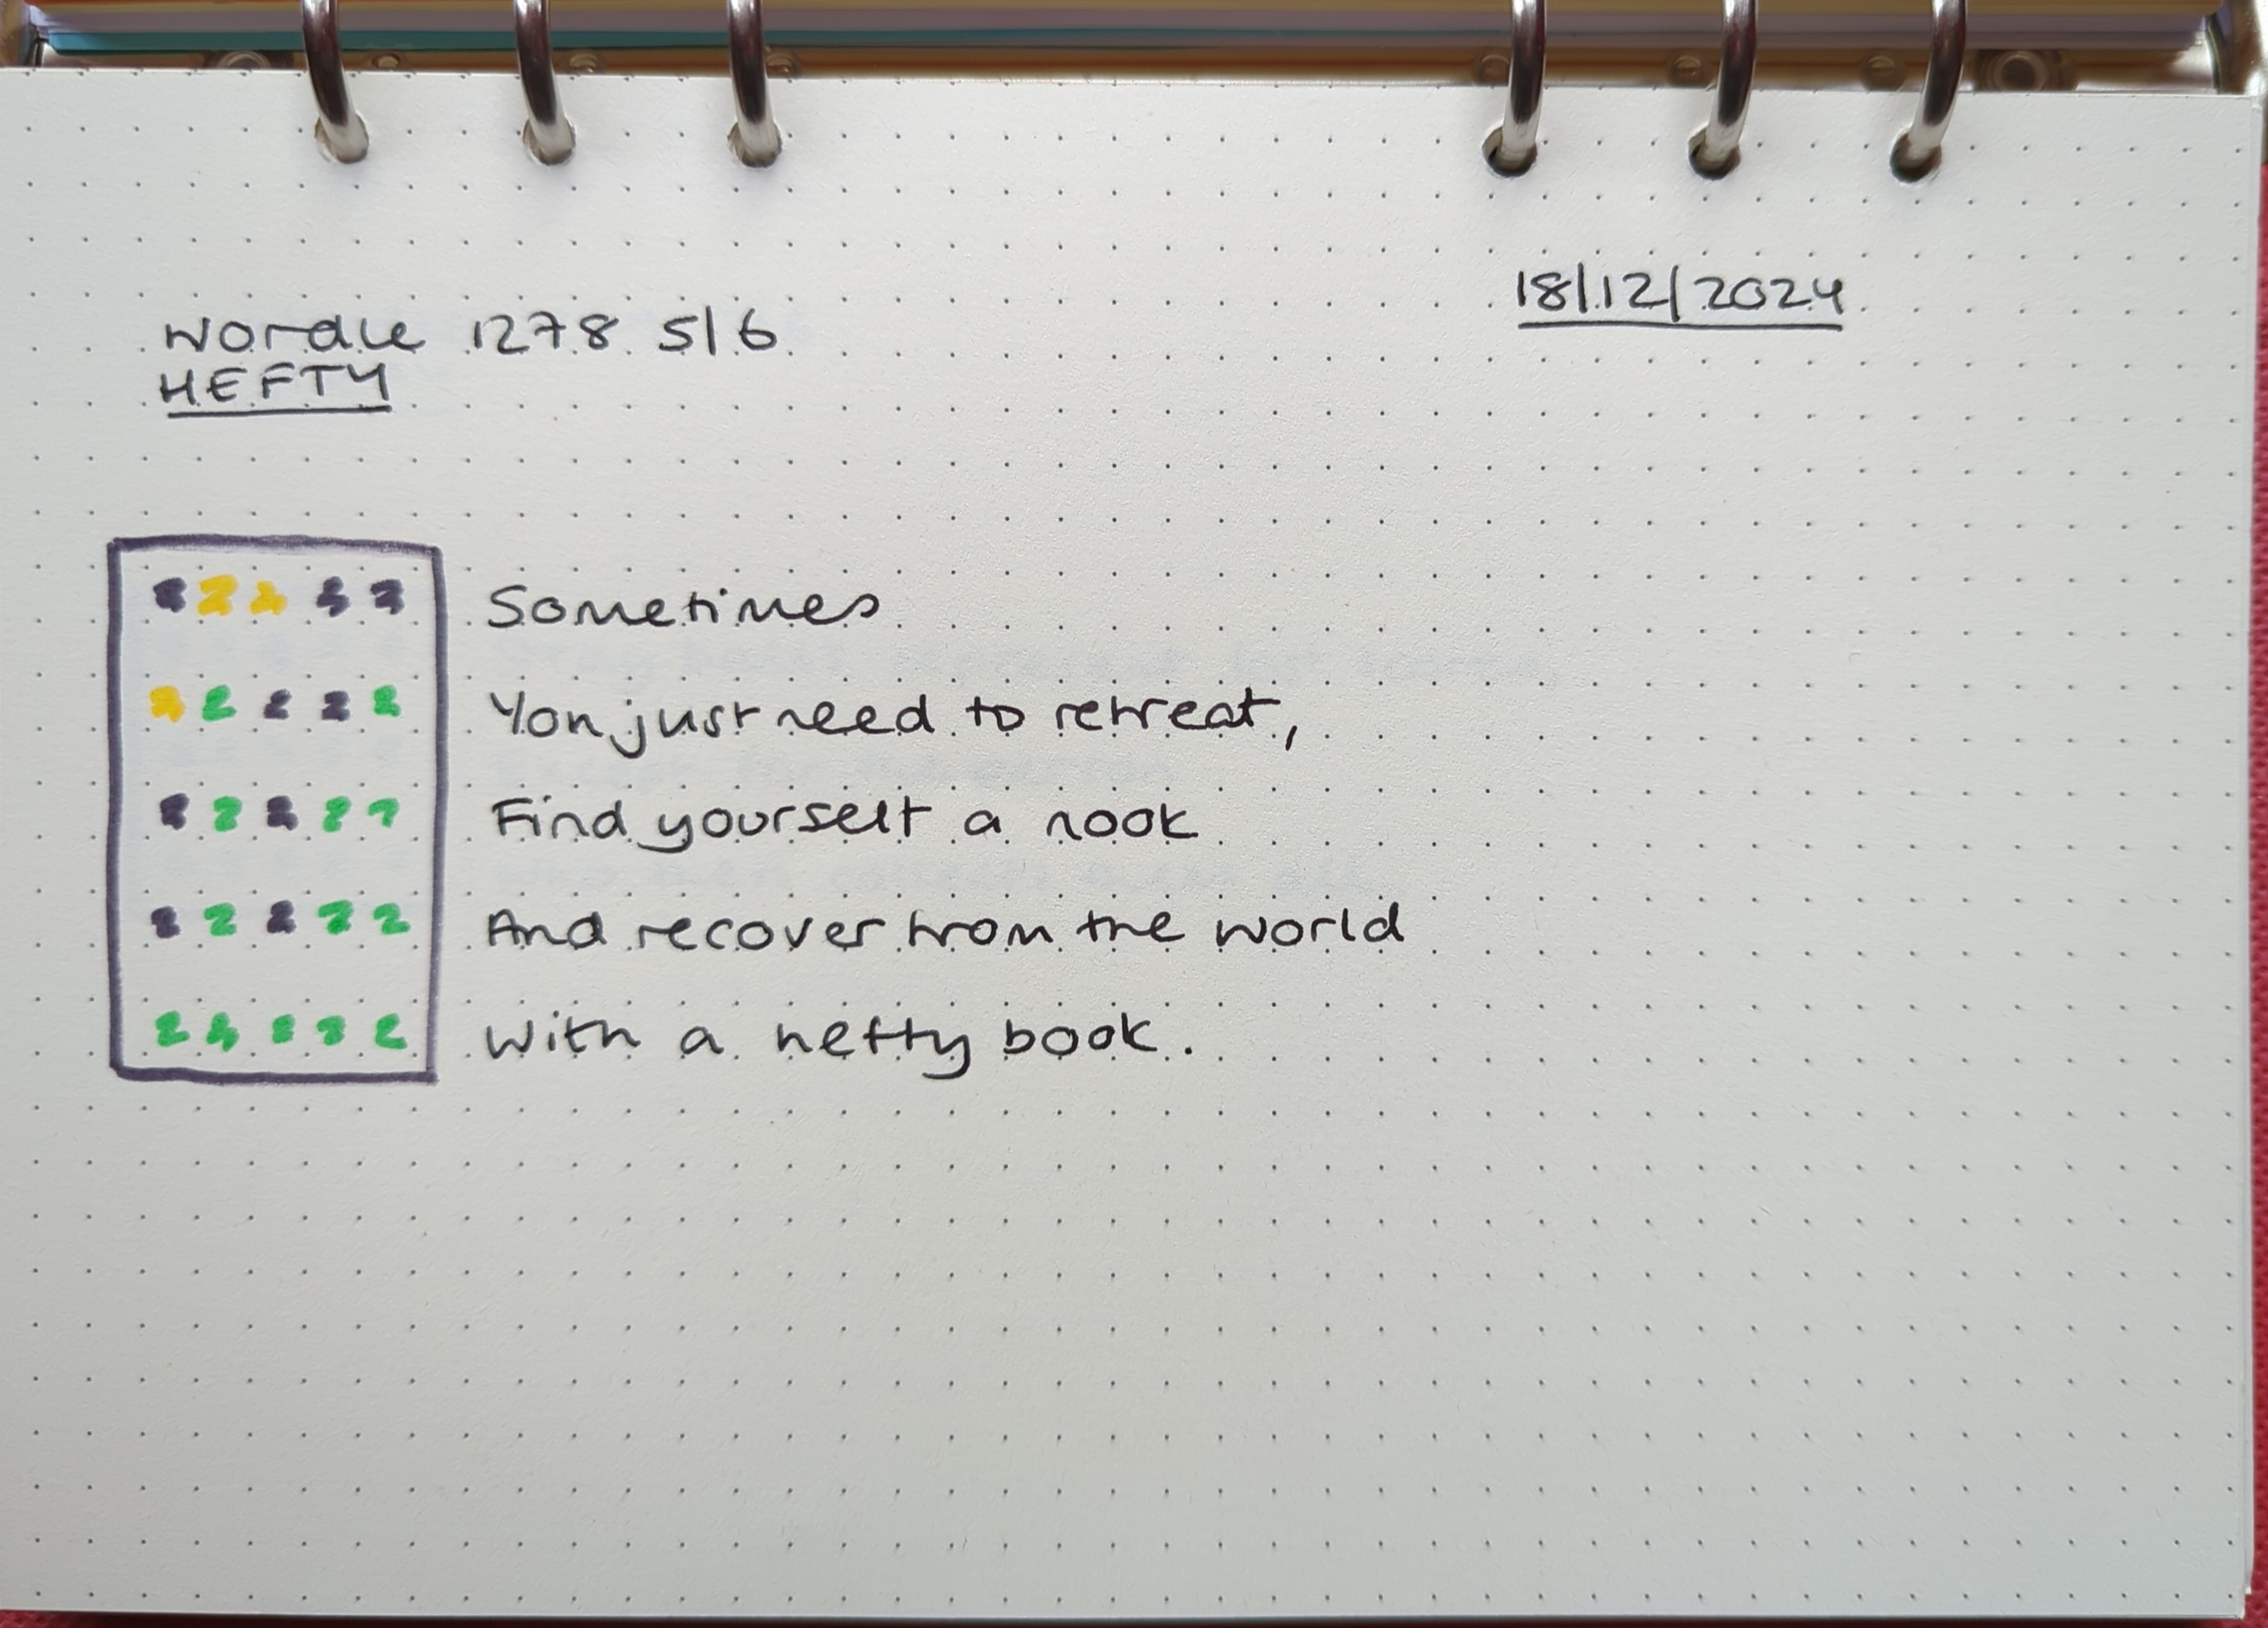 Wordle 1278 5/6
HEFTY
18/12/2024
Sometimes
You just need to retreat,
Find yourself a nook
And recover from the world
With a hefty book.